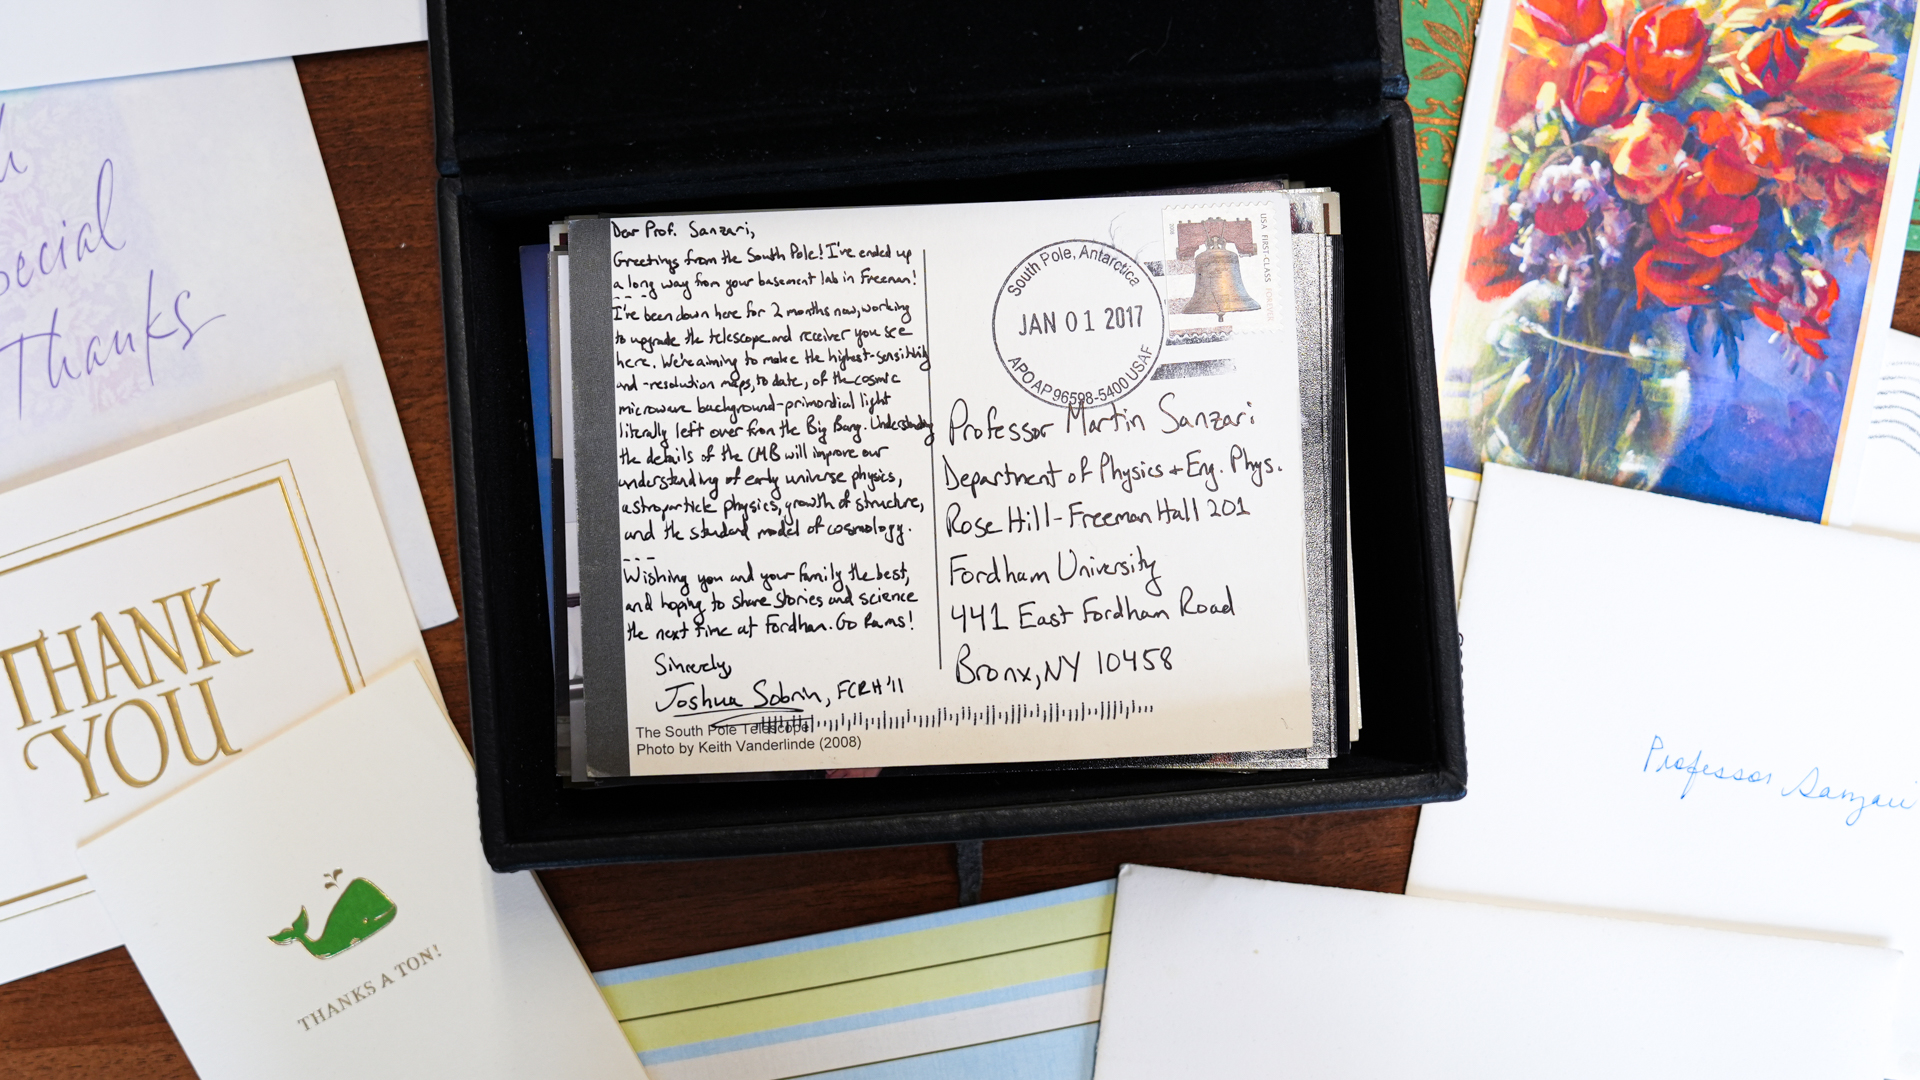 Special
Thanks
THANK
YOU
THANKS A TON!
Dear Prof. Sanzari,
Greetings from the South Pole! I've ended up
a long way from your basement lab in Freeman!
---
I've been down here for 2 months now, working
to upgrade the telescope and receiver you see
here. We're aiming to make the highest-sensitivity
and -resolution maps, to date, of the cosmic
microwave background-primordial light
literally left over from the Big Bang. Understanding
the details of the CMB will improve our
understanding of early universe physics,
astroparticle physics, growth of structure,
and the standard model of cosmology.
---
Wishing you and your family the best,
and hoping to share stories and science
the next time at Fordham. Go Rams!
Sincerely,
Joshua Sobrin, FCRH '11
The South Pole Telescope
Photo by Keith Vanderlinde (2008)
South Pole, Antarctica
JAN 01 2017
APO AP 96598-5400 USAF
USA FIRST-CLASS FOREVER
2008
Professor Martin Sanzari
Department of Physics + Eng. Phys.
Rose Hill-Freeman Hall 201
Fordham University
441 East Fordham Road
Bronx, NY 10458
Professor Sanzari